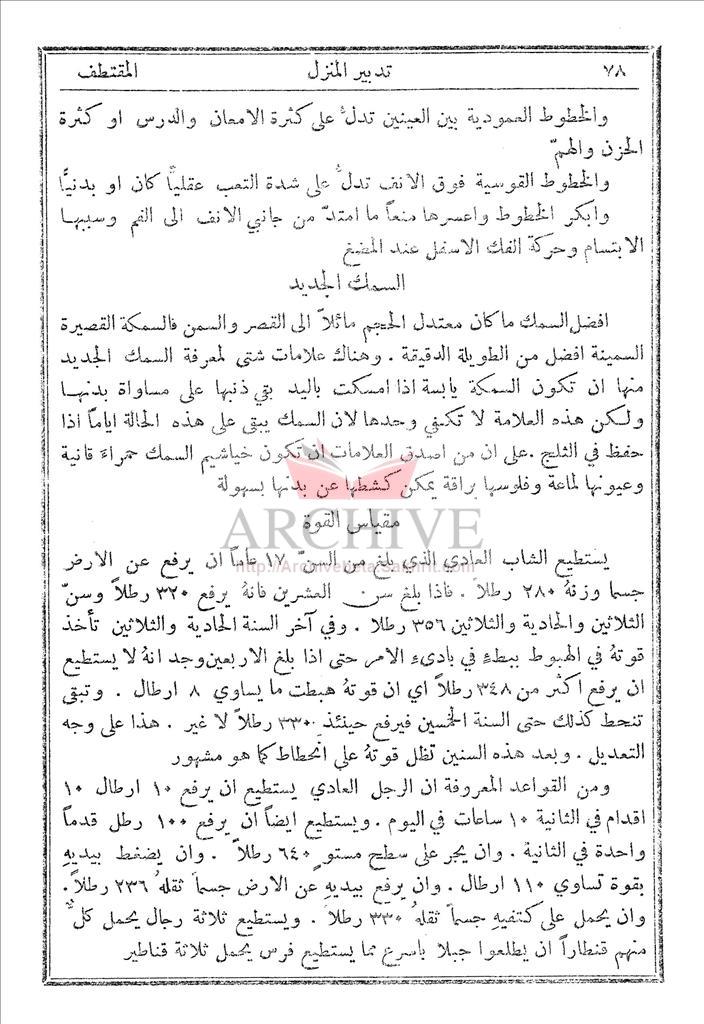 ٧٨ تدبير المنزل المقتطف
والخطوط العمودية بين العينين تدلُّ على كثرة الامعان والدرس او كثرة
الحزن والهمّ
والخطوط القوسية فوق الانف تدلُّ على شدة التعب عقليًّا كان او بدنيًّا
وابكر الخطوط واعسرها منعاً ما امتدّ من جانبي الانف الى الفم وسببها
الابتسام وحركة الفك الاسفل عند المضغ
السمك الجديد
افضل السمك ما كان معتدل الحجم مائلاً الى القصر والسمن فالسمكة القصيرة
السمينة افضل من الطويلة الدقيقة . وهناك علامات شتى لمعرفة السمك الجديد
منها ان تكون السمكة يابسة اذا امسكت باليد بقي ذنبها على مساواة بدنها
ولكن هذه العلامة لا تكفي وحدها لان السمك يبقى على هذه الحالة اياماً اذا
حفظ في الثلج . على ان من اصدق العلامات ان تكون خياشيم السمك حمراءَ قانية
وعيونها لماعة وفلوسها براقة يمكن كشطها عن بدنها بسهولة
مقياس القوة
ARCHIVE
يستطيع الشاب العادي الذي بلغ من السنّ ١٧ عاماً ان يرفع عن الارض
http://Archivebeta.Sakhrit.com
جسما وزنهُ ٢٨٠ رطلاً . فاذا بلغ سن العشرين فانهُ يرفع ٣٢٠ رطلاً وسنّ
الثلاثين والحادية والثلاثين ٣٥٦ رطلا . وفي آخر السنة الحادية والثلاثين تأخذ
قوتهُ في الهبوط ببطءٍ في بادىءِ الامر حتى اذا بلغ الاربعين وجد انهُ لا يستطيع
ان يرفع اكثر من ٣٤٨ رطلاً اي ان قوتهُ هبطت ما يساوي ٨ ارطال . وتبقى
تنحط كذلك حتى السنة الخمسين فيرفع حينئذ ٣٣٠ رطلاً لا غير . هذا على وجه
التعديل . وبعد هذه السنين تظل قوتهُ على انحطاط كما هو مشهور
ومن القواعد المعروفة ان الرجل العادي يستطيع ان يرفع ١٠ ارطال ١٠
اقدام في الثانية ١٠ ساعات في اليوم . ويستطيع ايضاً ان يرفع ١٠٠ رطل قدماً
واحدة في الثانية . وان يجر على سطح مستوٍ ٦٤٠ رطلاً . وان يضغط بيديهِ
بقوة تساوي ١١٠ ارطال . وان يرفع بيديهِ عن الارض جسماً ثقلهُ ٢٣٦ رطلاً .
وان يحمل على كتفيهِ جسماً ثقلهُ ٣٣٠ رطلاً . ويستطيع ثلاثة رجال يحمل كلٌّ
منهم قنطاراً ان يطلعوا جبلا باسرع مما يستطيع فرس يحمل ثلاثة قناطير